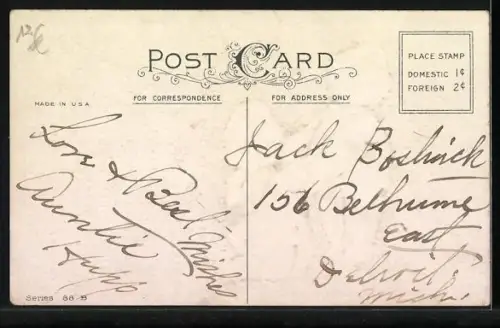 POST CARD
PLACE STAMP
DOMESTIC 1¢
FOREIGN 2¢
MADE IN U.S.A
FOR CORRESPONDENCE
FOR ADDRESS ONLY
Love & Best Wishes
Auntie
Jack Bostwick
156
East
Detroit.
Mich.
Series 66 B